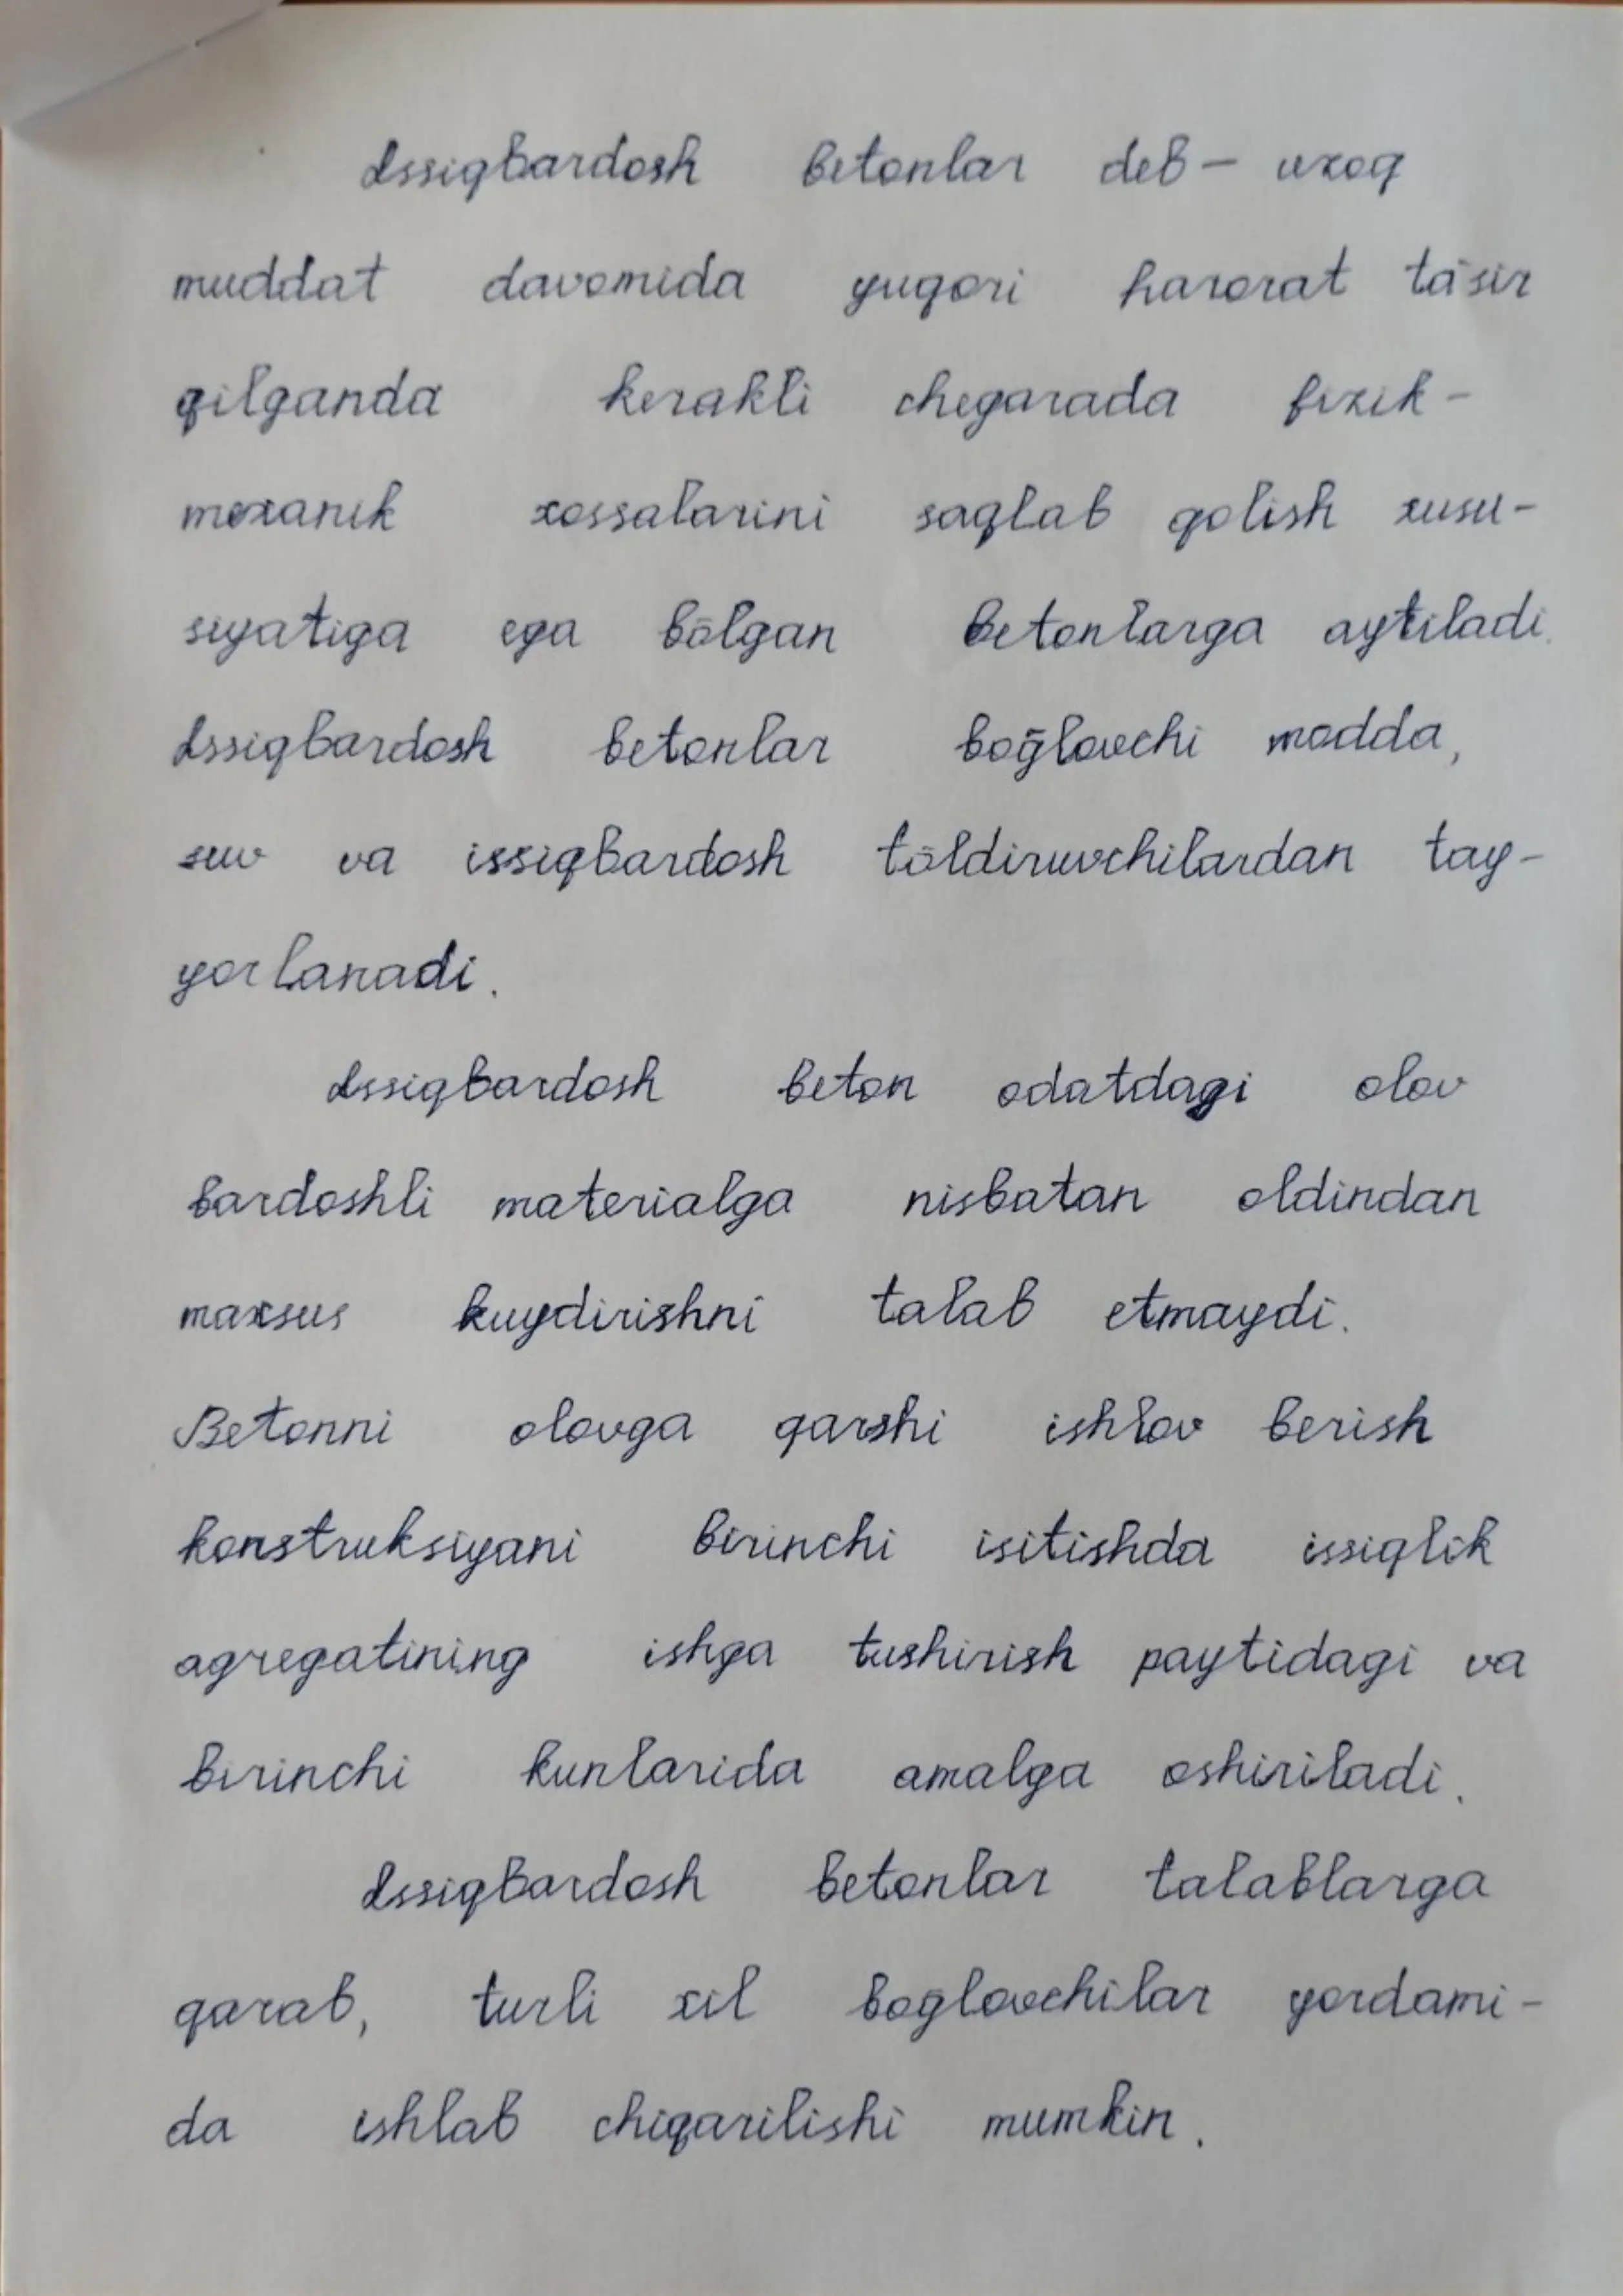 Issiqbardosh betonlar deb – uzoq
muddat davomida yuqori harorat ta'sir
qilganda kerakli chegarada fizik-
mexanik xossalarini saqlab qolish xusu-
siyatiga ega bōlgan betonlarga aytiladi.
Issiqbardosh betonlar boḡlovchi modda,
suv va issiqbardosh tōldiruvchilardan tay-
yorlanadi.
Issiqbardosh beton odatdagi olov
bardoshli materialga nisbatan oldindan
maxsus kuydirishni talab etmaydi.
Betonni olovga qarshi ishlov berish
konstruksiyani birinchi isitishda issiqlik
agregatining ishga tushirish paytidagi va
birinchi kunlarida amalga oshiriladi.
Issiqbardosh betonlar talablarga
qarab, turli xil boglovchilar yordami-
da ishlab chiqarilishi mumkin.